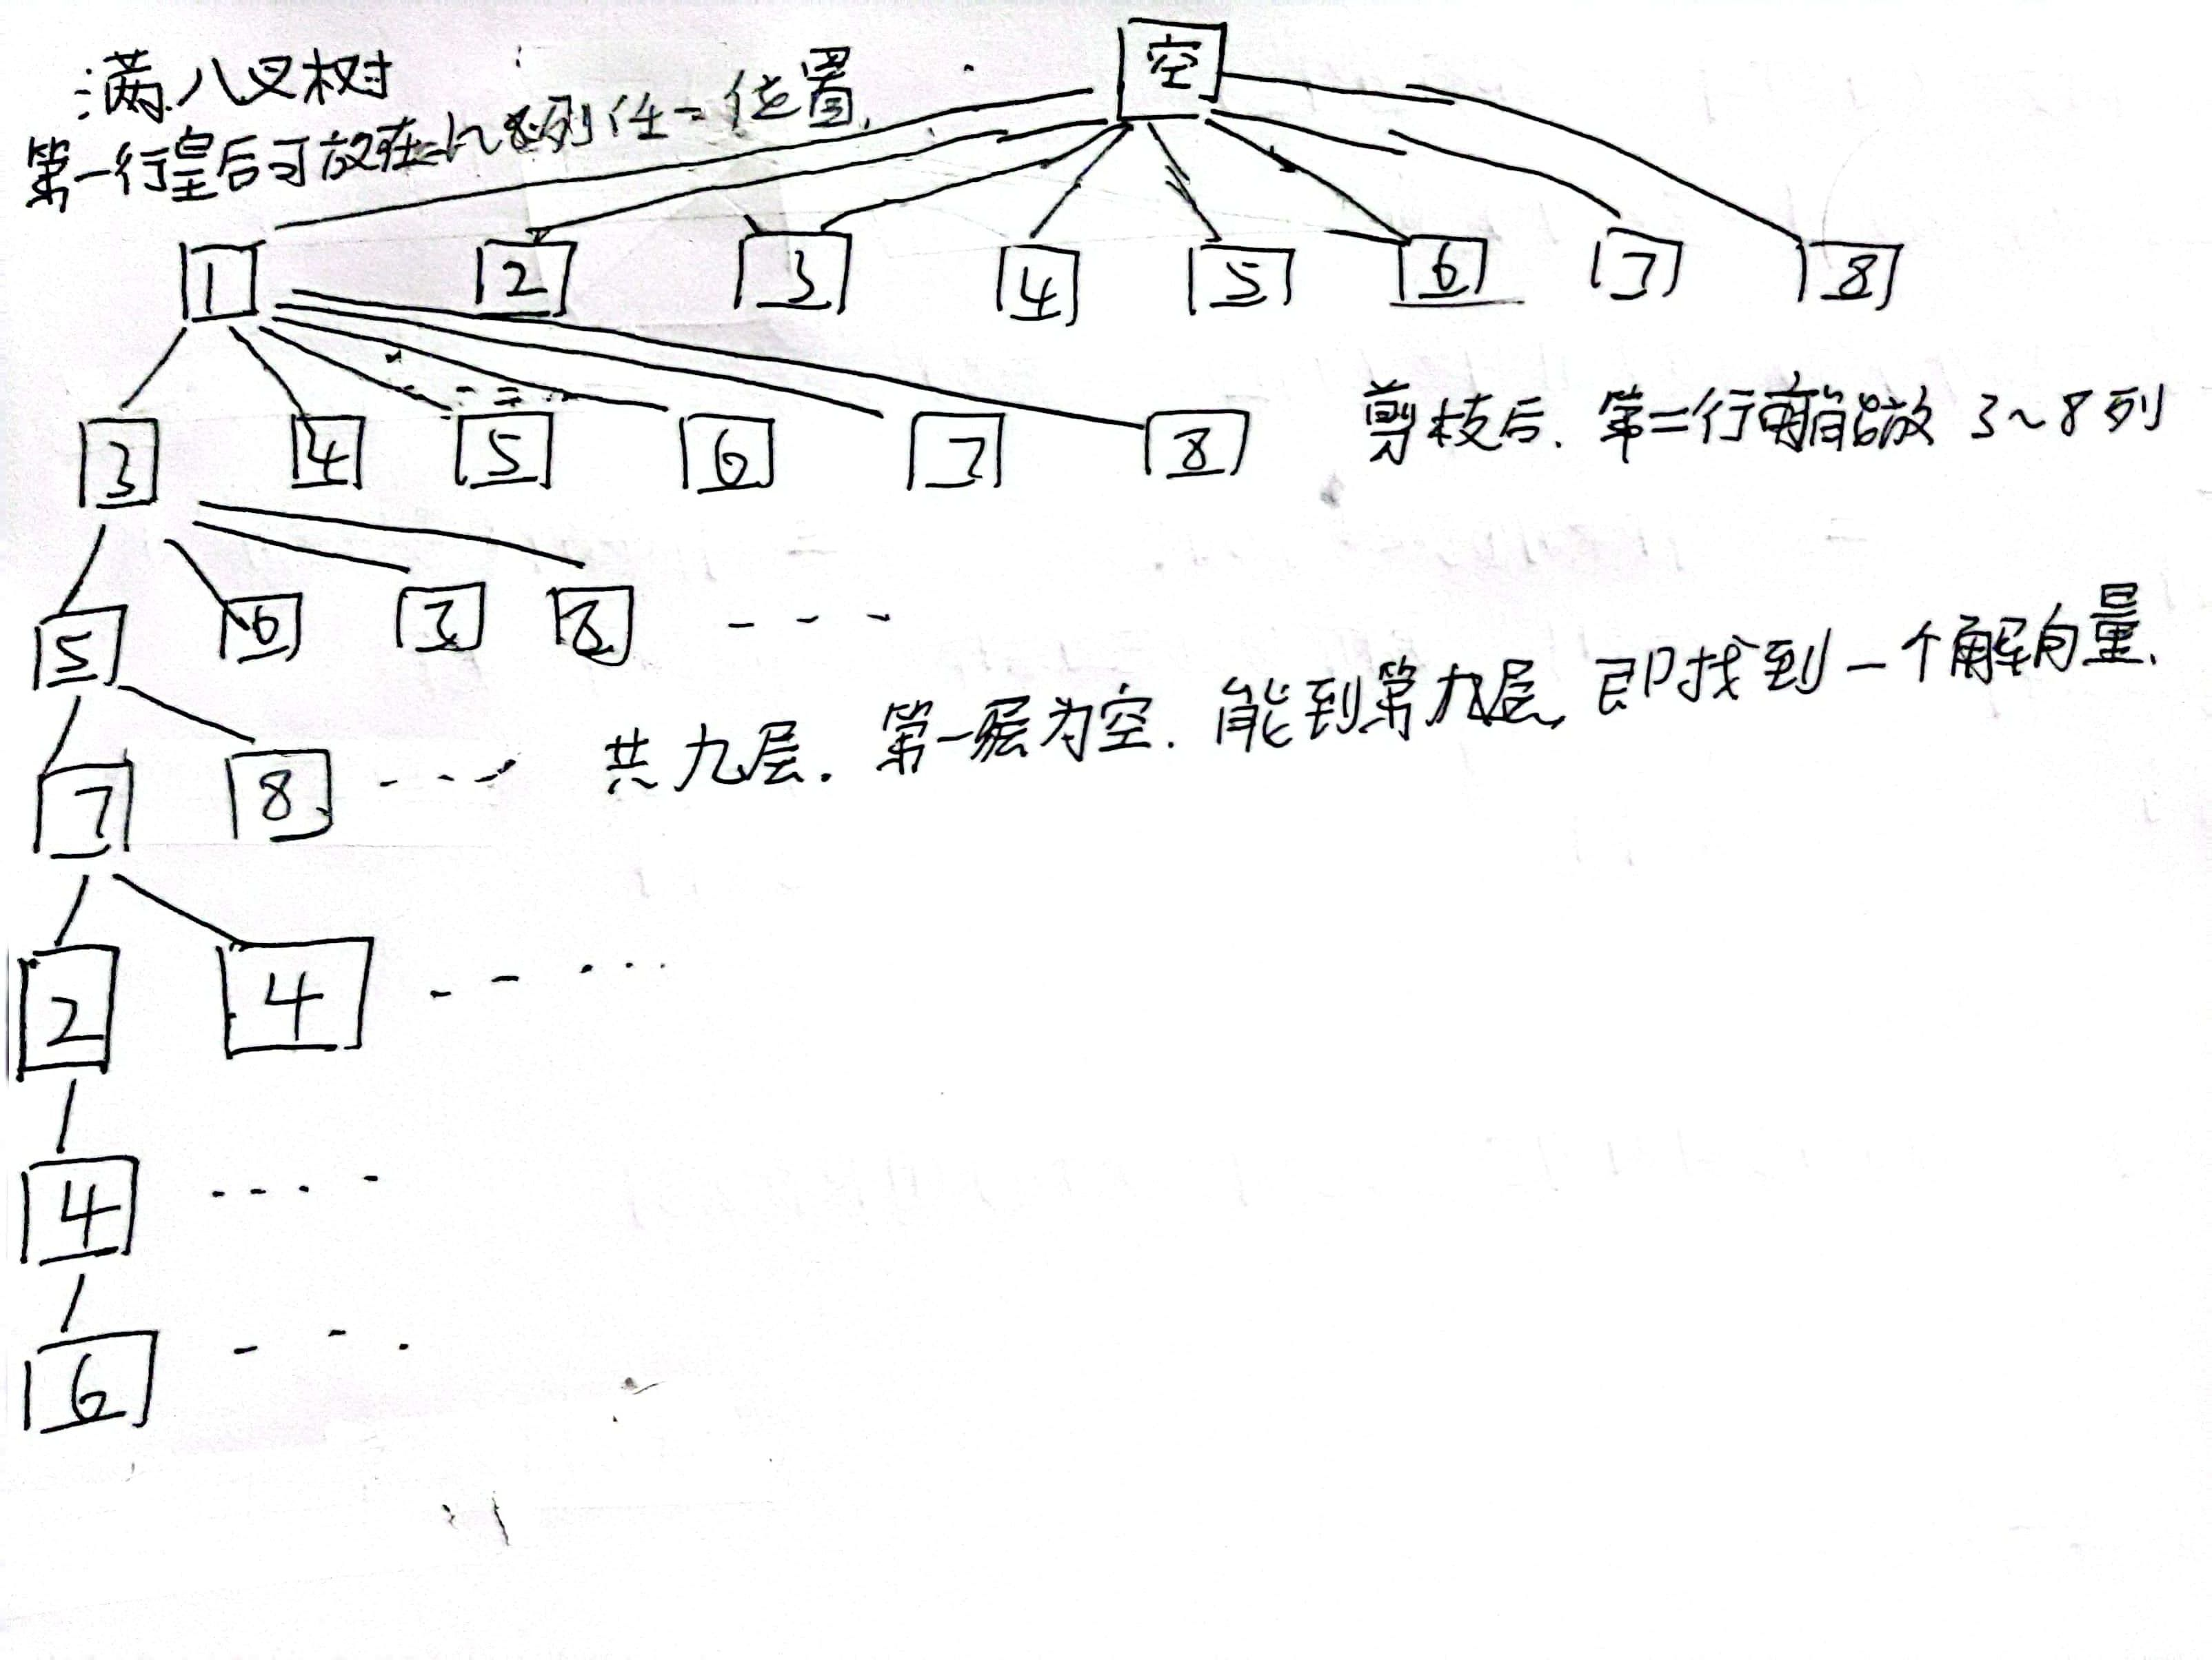 满八叉树
第一行皇后可放在1~8列任一位置.
空
1 2 3 4 5 6 7 8
3 4 5 6 7 8
剪枝后. 第二行能放 3~8列
5 6 7 8
7 8
共九层. 第一层为空. 能到第九层, 即找到一个解向量.
2 4
4
6